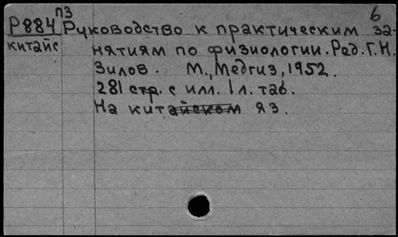 ПЗ 6
Р884 Руководство к практическим за-
китайс нятиям по физиологии. Ред. Г.Н.
Зилов. М., Медгиз, 1952.
281 стр. с илл. 1 л. таб.
На китайском яз.